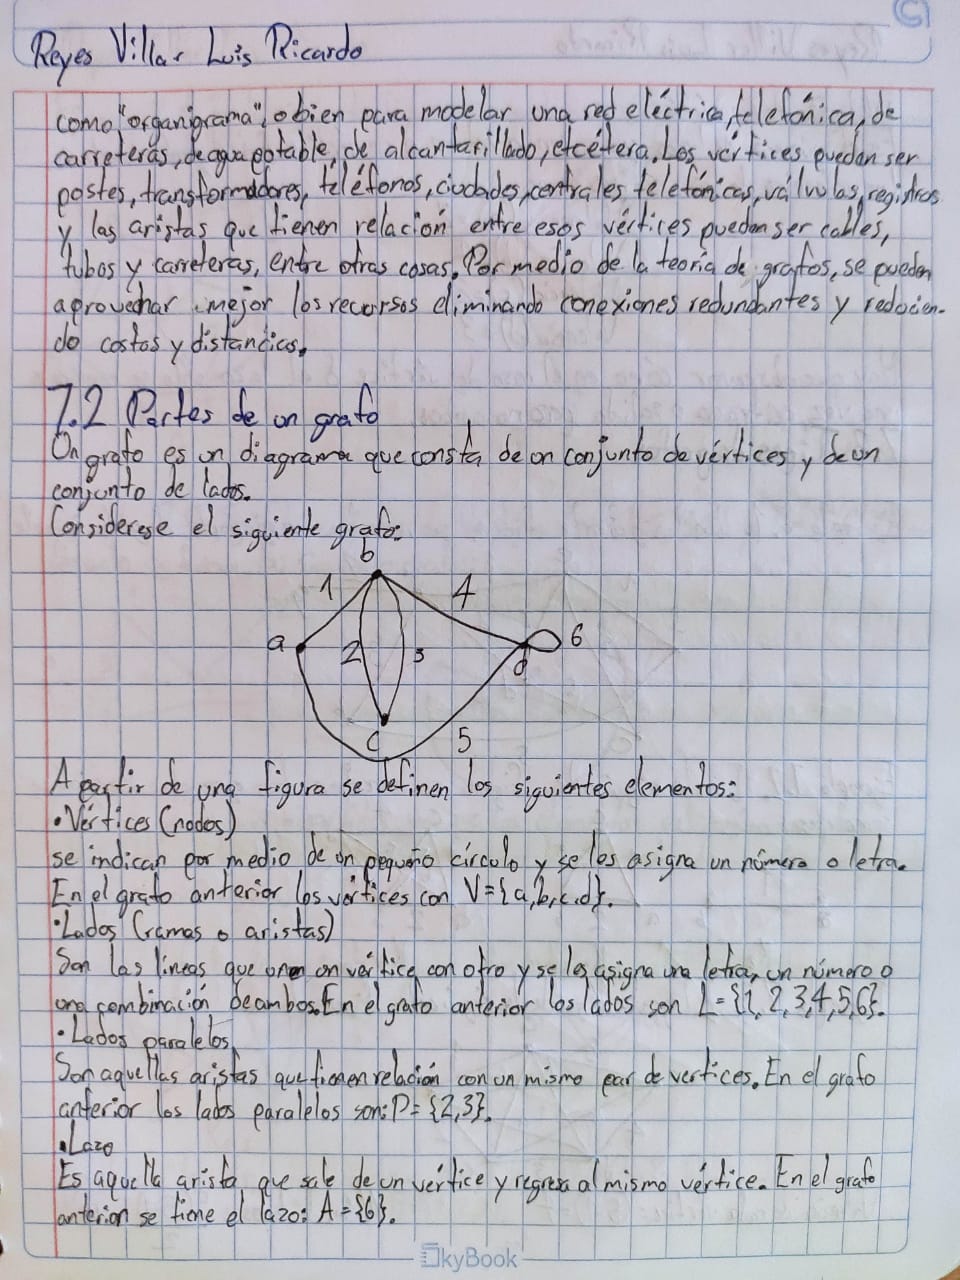 Reyes Villar Luis Ricardo
como "organigrama", o bien para modelar una red eléctrica, telefónica, de
carreteras, de agua potable, de alcantarillado, etcétera. Los vértices pueden ser
postes, transformadores, teléfonos, ciudades, centrales telefónicas, válvulas, registros
y las aristas que tienen relación entre esos vértices pueden ser cables,
tubos y carreteras, entre otras cosas. Por medio de la teoría de grafos, se pueden
aprovechar mejor los recursos eliminando conexiones redundantes y reducien-
do costos y distancias.
7.2 Partes de un grafo
Un grafo es un diagrama que consta de un conjunto de vértices y de un
conjunto de lados.
Considerese el siguiente grafo:
b
1 4
a 2 3 d 6
c 5
A partir de una figura se definen los siguientes elementos:
•Vértices (nodos)
se indican por medio de un pequeño círculo y se les asigna un número o letra.
En el grafo anterior los vértices con V={a,b,c,d}.
•Lados (ramas o aristas)
Son las líneas que unen un vértice con otro y se les asigna una letra, un número o
una combinación de ambos. En el grafo anterior los lados son L={1,2,3,4,5,6}.
•Lados paralelos
Son aquellas aristas que tienen relación con un mismo par de vertices. En el grafo
anterior los lados paralelos son: P={2,3}.
•Lazo
Es aquella arista que sale de un vértice y regresa al mismo vértice. En el grafo
anterior se tiene el lazo: A={6}.
SkyBook